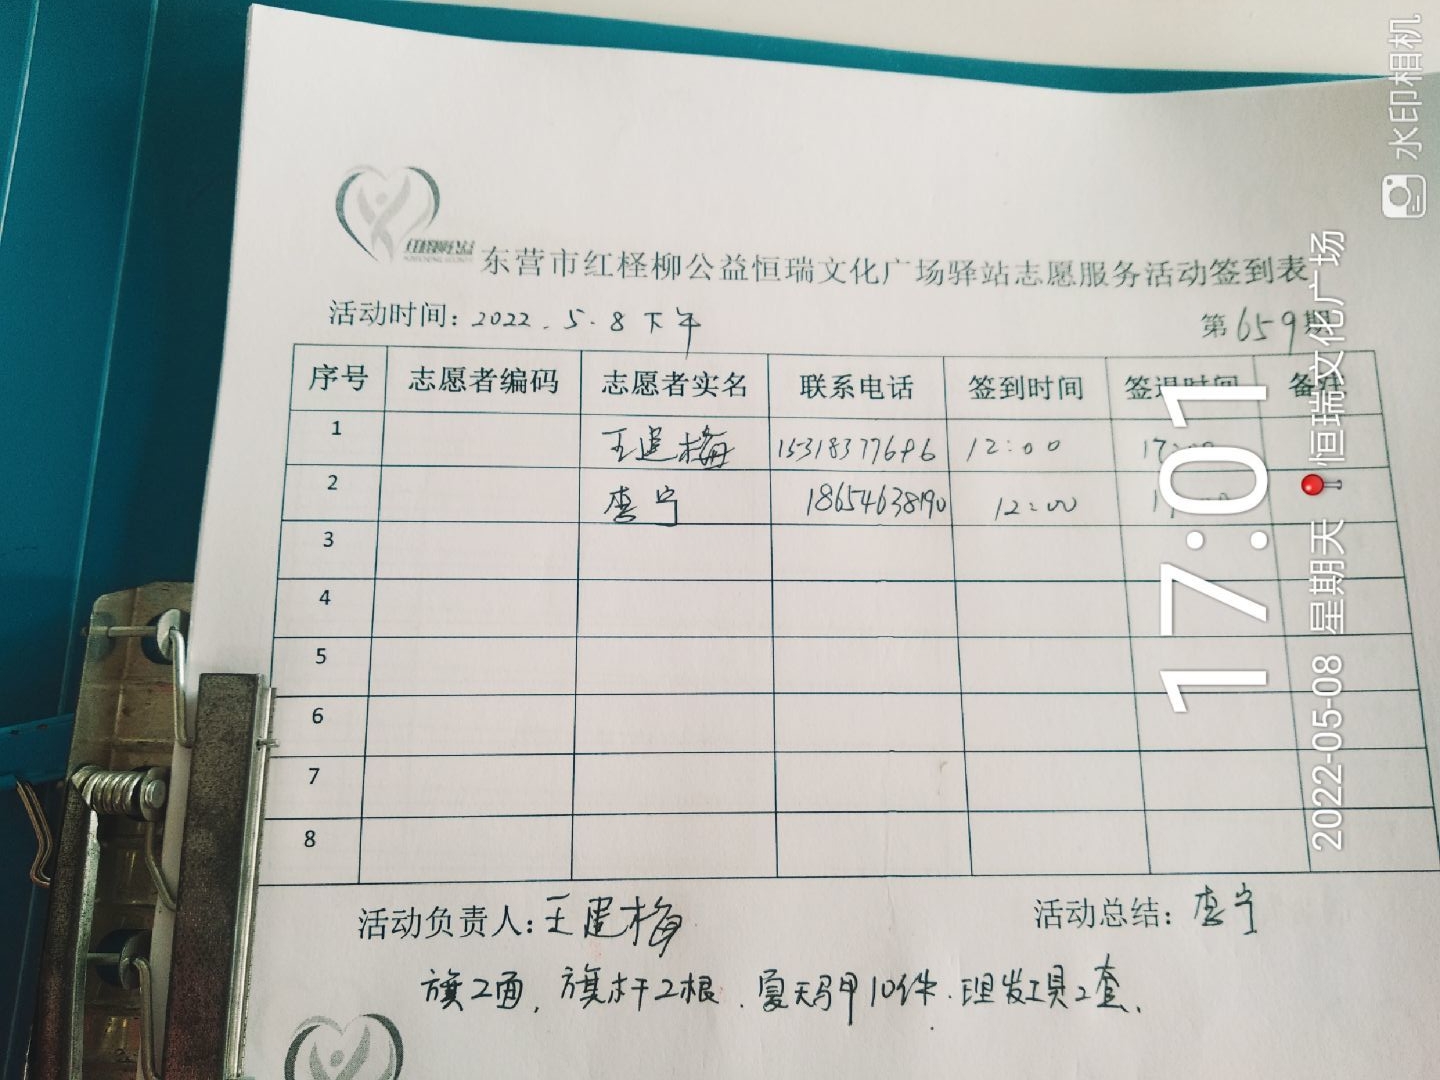 东营市红柽柳公益恒瑞文化广场驿站志愿服务活动签到表
活动时间：2022.5.8下午 第659期
序号 志愿者编码 志愿者实名 联系电话 签到时间 签退时间 备注
1 王建梅 15318377696 12:00 17:00
2 李宁 18654638190 12:00
3
4
5
6
7
8
活动负责人：王建梅 活动总结：李宁
旗2面，旗杆2根．夏天马甲10件．理发工具2套．
17:01
2022-05-08 星期天 恒瑞文化广场
水印相机